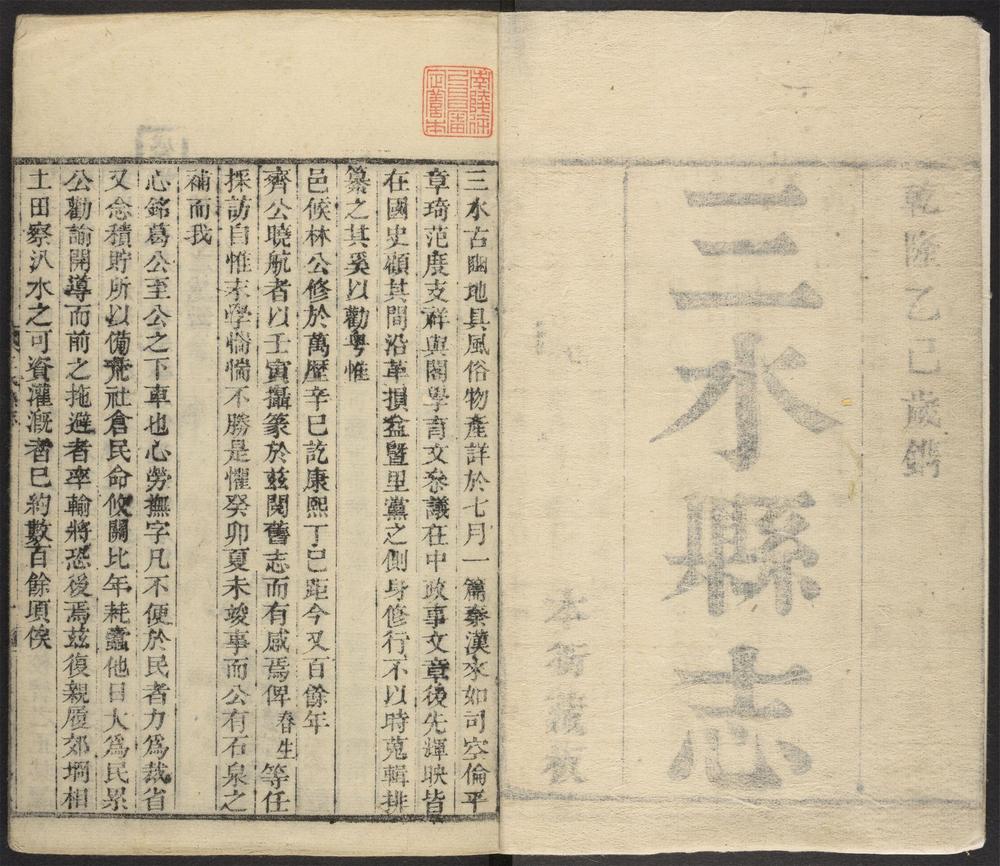 乾隆乙巳歲鐫
三水縣志
本衙藏板
三水古豳地其風俗物產詳於七月一篇秦漢來如司空倫平
章琦范度支祥與閣學育文叅議在中政事文章後先輝映皆
在國史顧其間沿革損益暨里黨之側身修行不以時蒐輯排
纂之其奚以勸粵惟
邑候林公修於萬歷辛巳訖康熙丁巳距今又百餘年
齊公曉航者以壬寅攝篆於兹閱舊志而有感焉俾春生等任
採訪自惟末學惝惝不勝是懼癸卯夏未竣事而公有石泉之
補而我
心銘葛公至公之下車也心勞撫字凡不便於民者力為裁省
又念積貯所以備荒社倉民命攸關比年耗蠧他日大為民累
公勸諭開導而前之拖避者率輸將恐後焉兹復親履郊坰相
土田察汃水之可資灌溉者巳約數百餘項俟
南陵徐
乃昌審
定善本